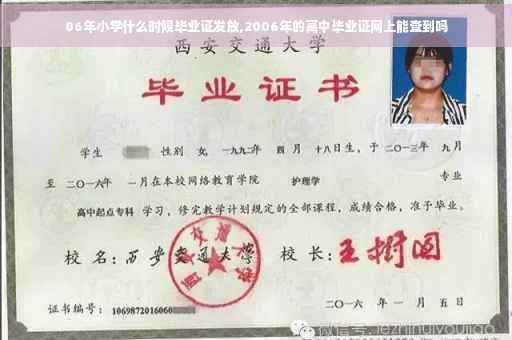 06年小学什么时候毕业证发放,2006年的高中毕业证网上能查到吗
西安交通大学
毕业证书
学生 性别 女, 一九九二年 四月 十八日生, 于 二〇一三年 九月
至 二〇一六年 一月在本校网络教育学院 护理学 专业
高中起点专科 学习, 修完教学计划规定的全部课程, 成绩合格, 准予毕业。
校名: 西安交通大学 校长: 王树国
西安交通大学
证书编号: 1069872016060
二〇一六年 一月 五日
微信号: jezhihuiyoujiao